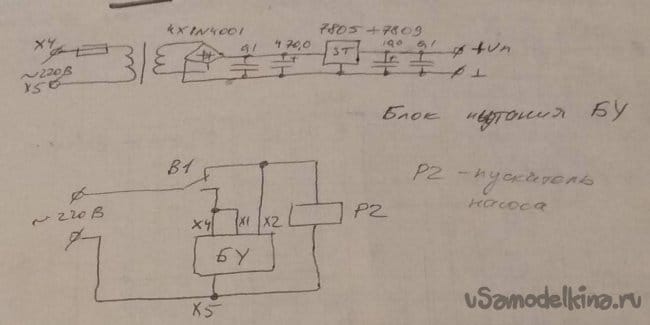 X4
4X1N4001
0,1
470,0
7805÷7809
ST
10,0
0,1
+Uп
~220В
X5
⊥
Блок питания БУ
В1
~220В
X4 X1 X2
БУ
X5
Р2
Р2 - пускатель
насоса
vSamodelkina.ru